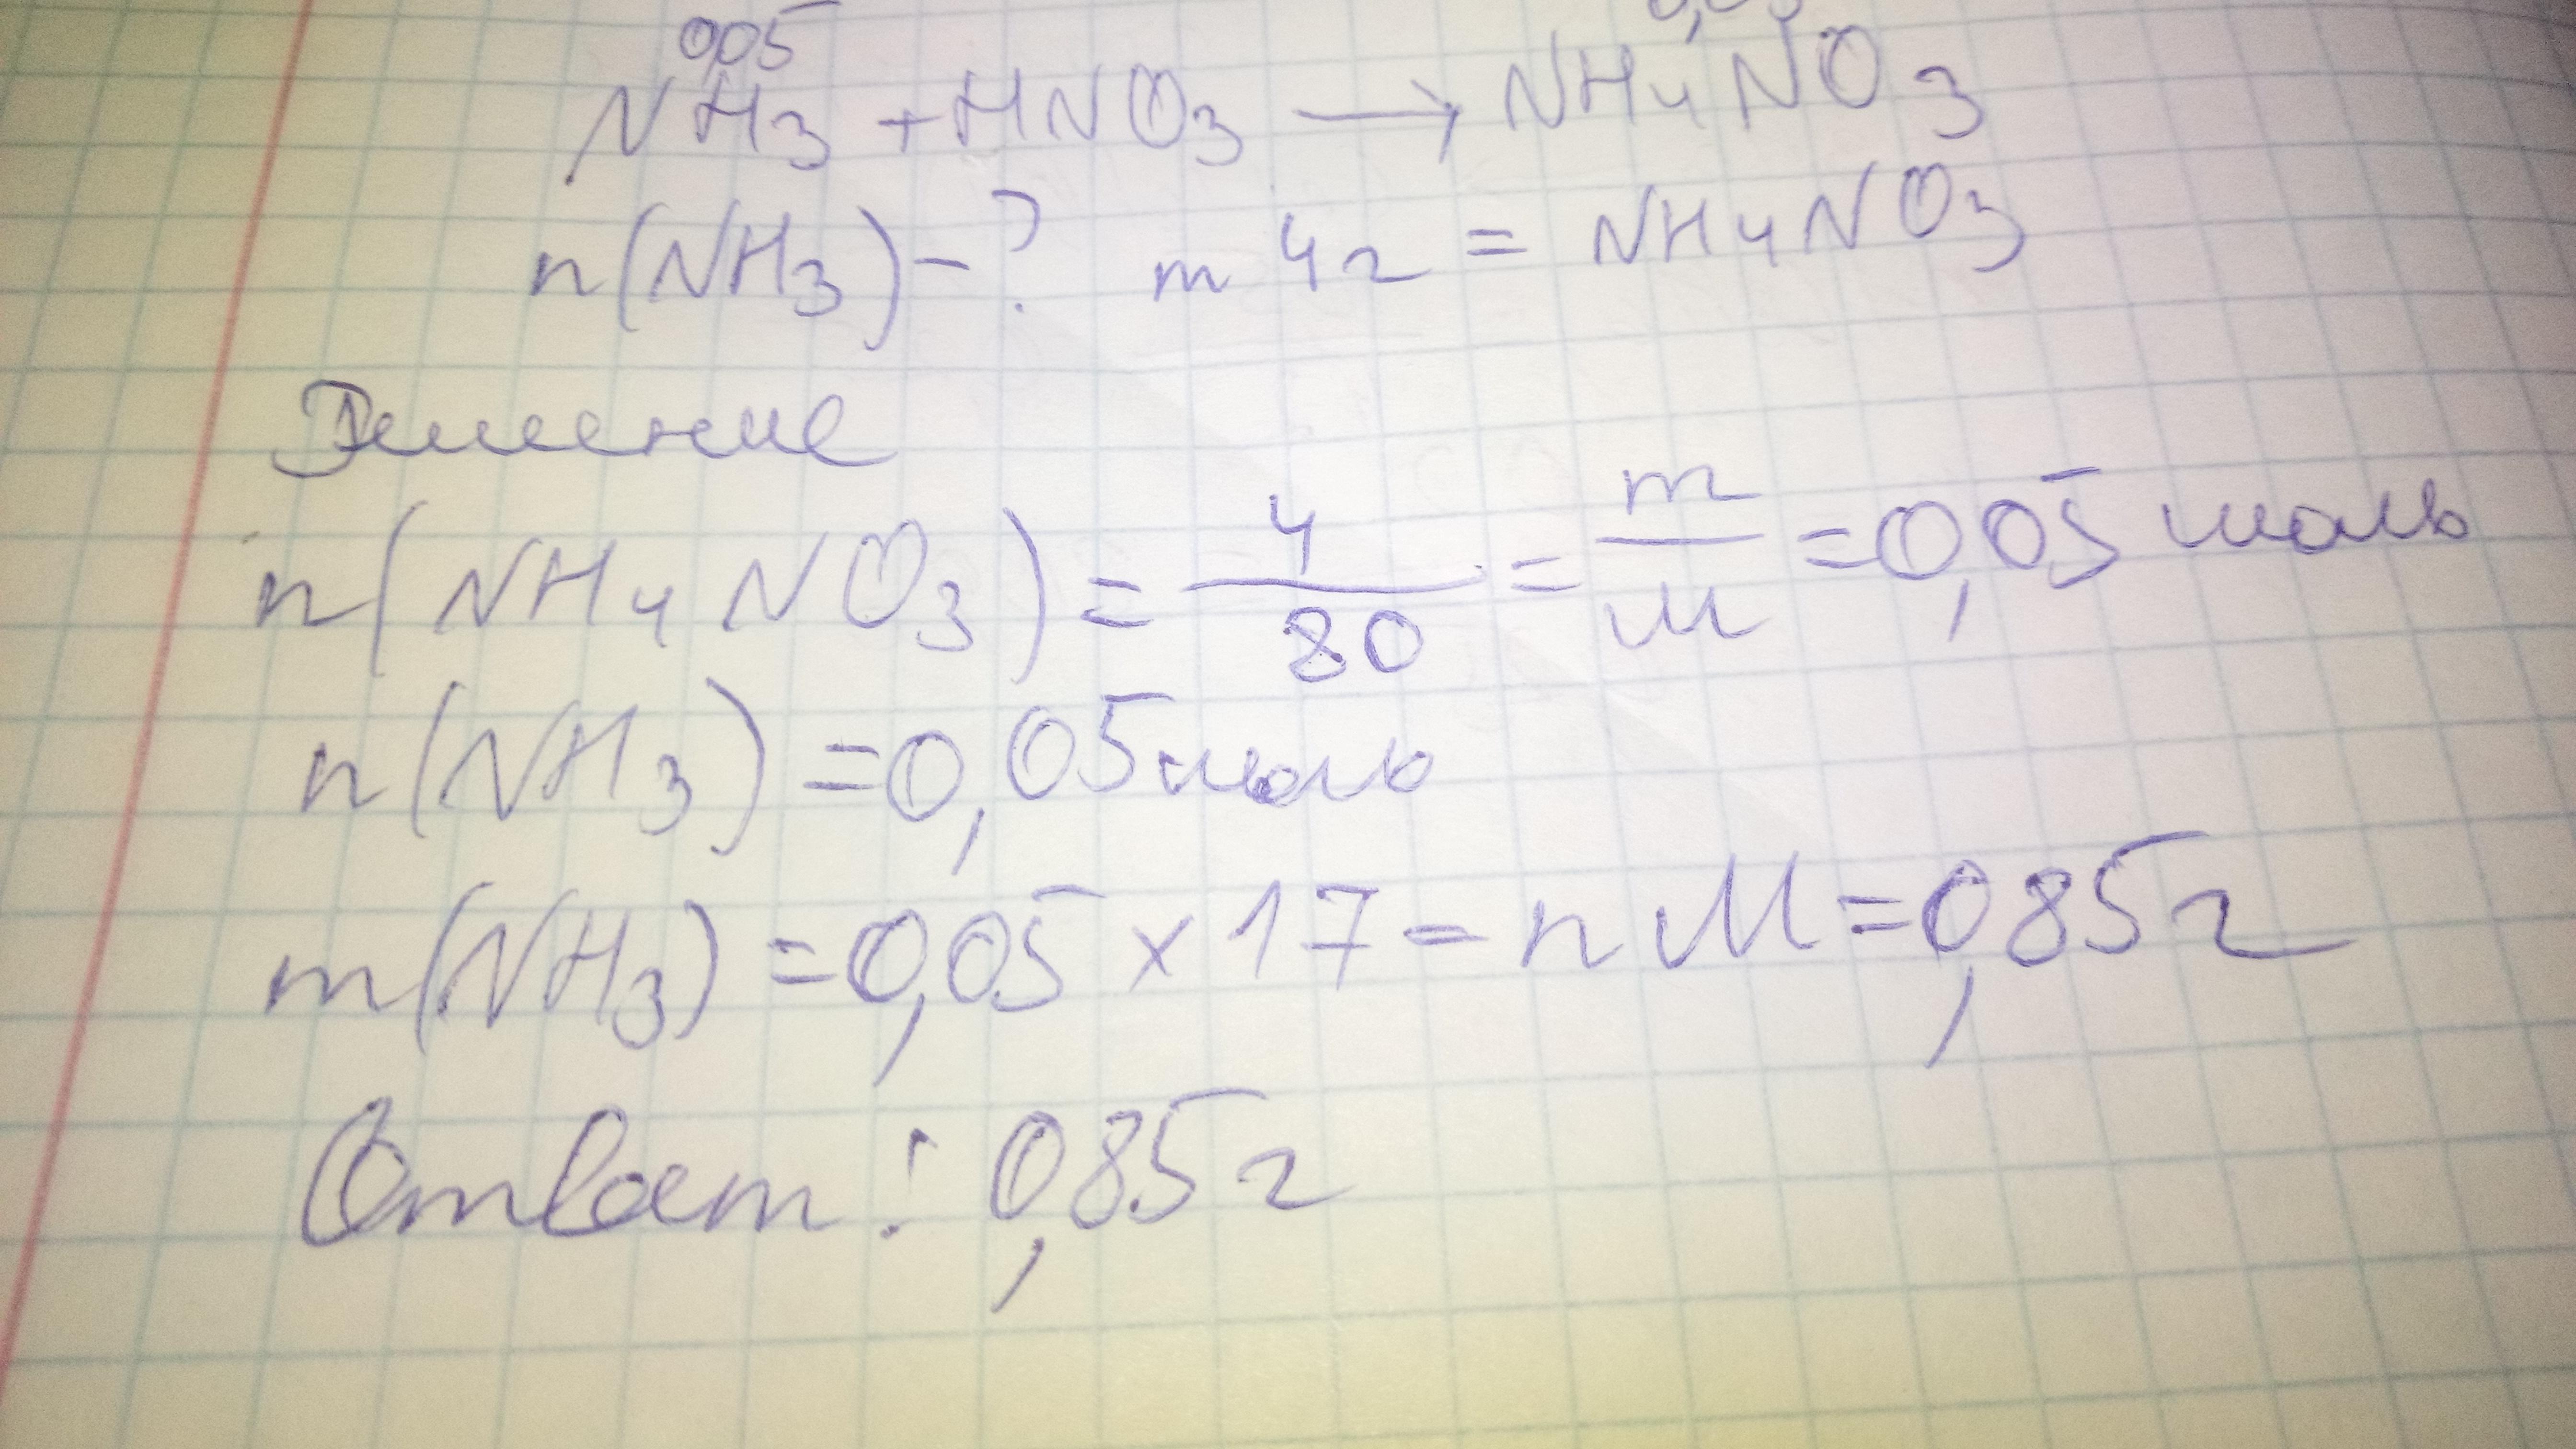 0,05 0,05
NH3 + HNO3 → NH4NO3
n(NH3) - ? m 4г = NH4NO3
Решение
n(NH4NO3) = 4/80 = m/M = 0,05 моль
n(NH3) = 0,05 моль
m(NH3) = 0,05 × 17 = nM = 0,85г
Ответ: 0,85г